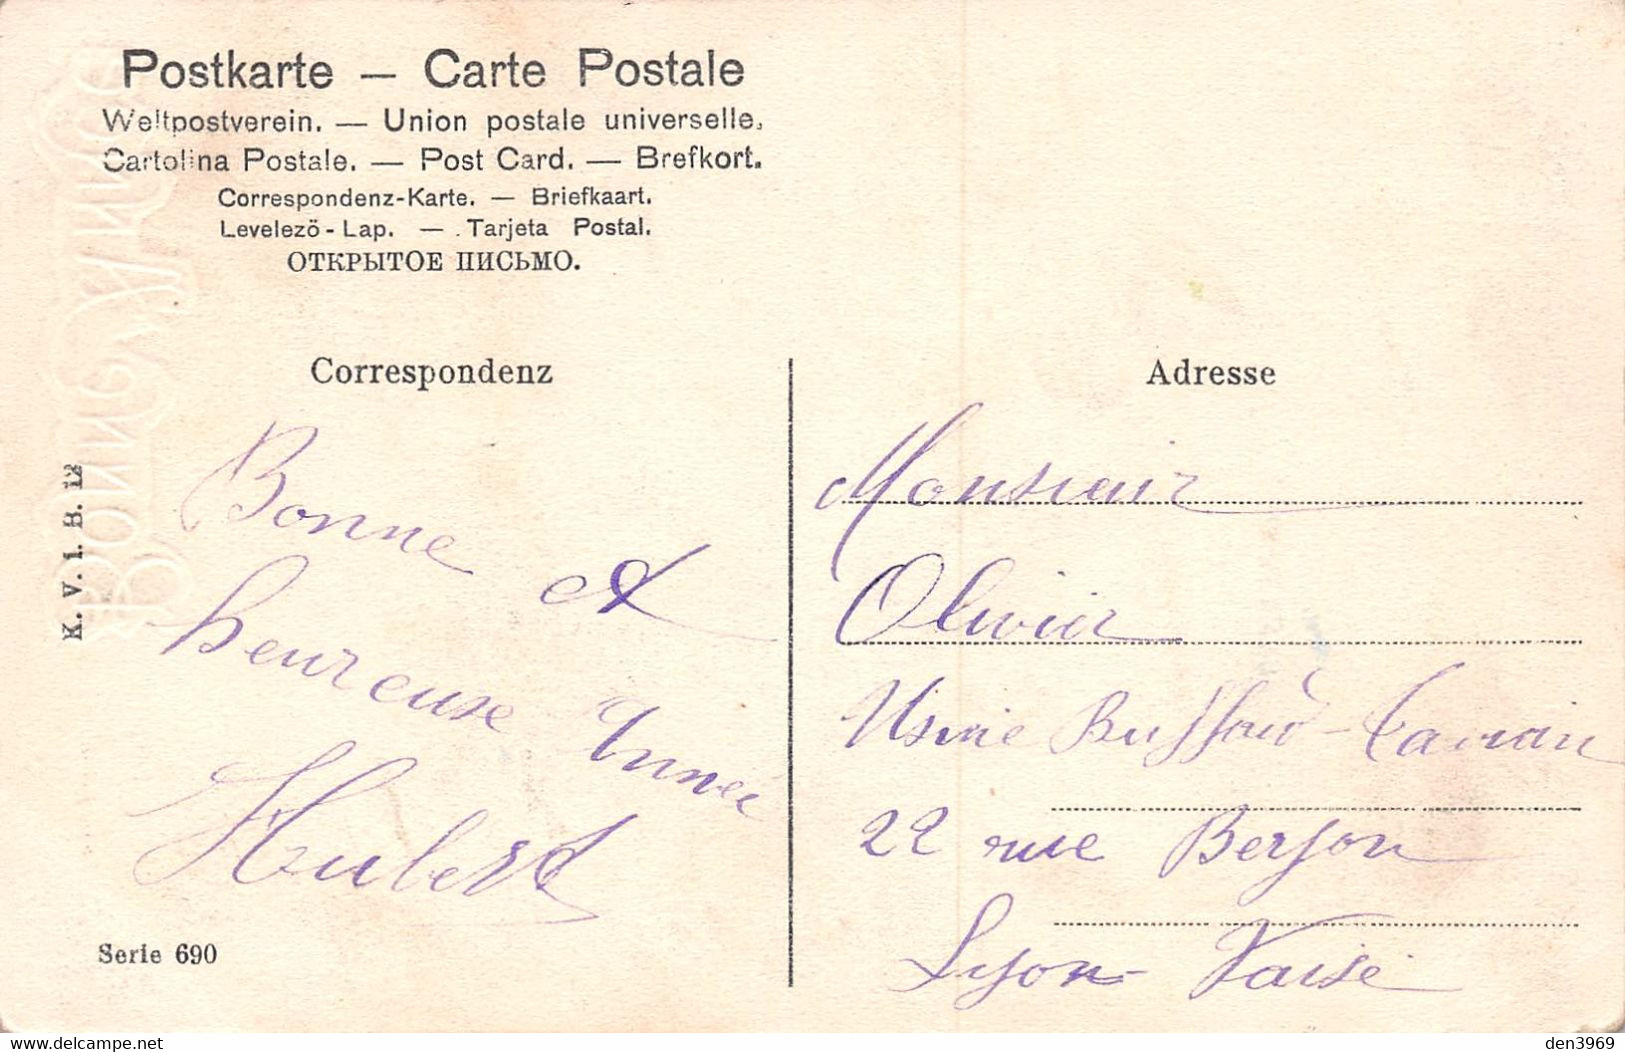 Postkarte — Carte Postale
Weltpostverein. — Union postale universelle.
Cartolina Postale. — Post Card. — Brefkort.
Correspondenz-Karte. — Briefkaart.
Levelező - Lap. — Tarjeta Postal.
ОТКРЫТОЕ ПИСЬМО.
Correspondenz
Bonne et
heureuse Année
Hubert
K. V. i. B. 12
Serie 690
Adresse
Monsieur
Olivier
Usine
22 rue Berjon
Lyon - Vaise
delcampe.net
den3969